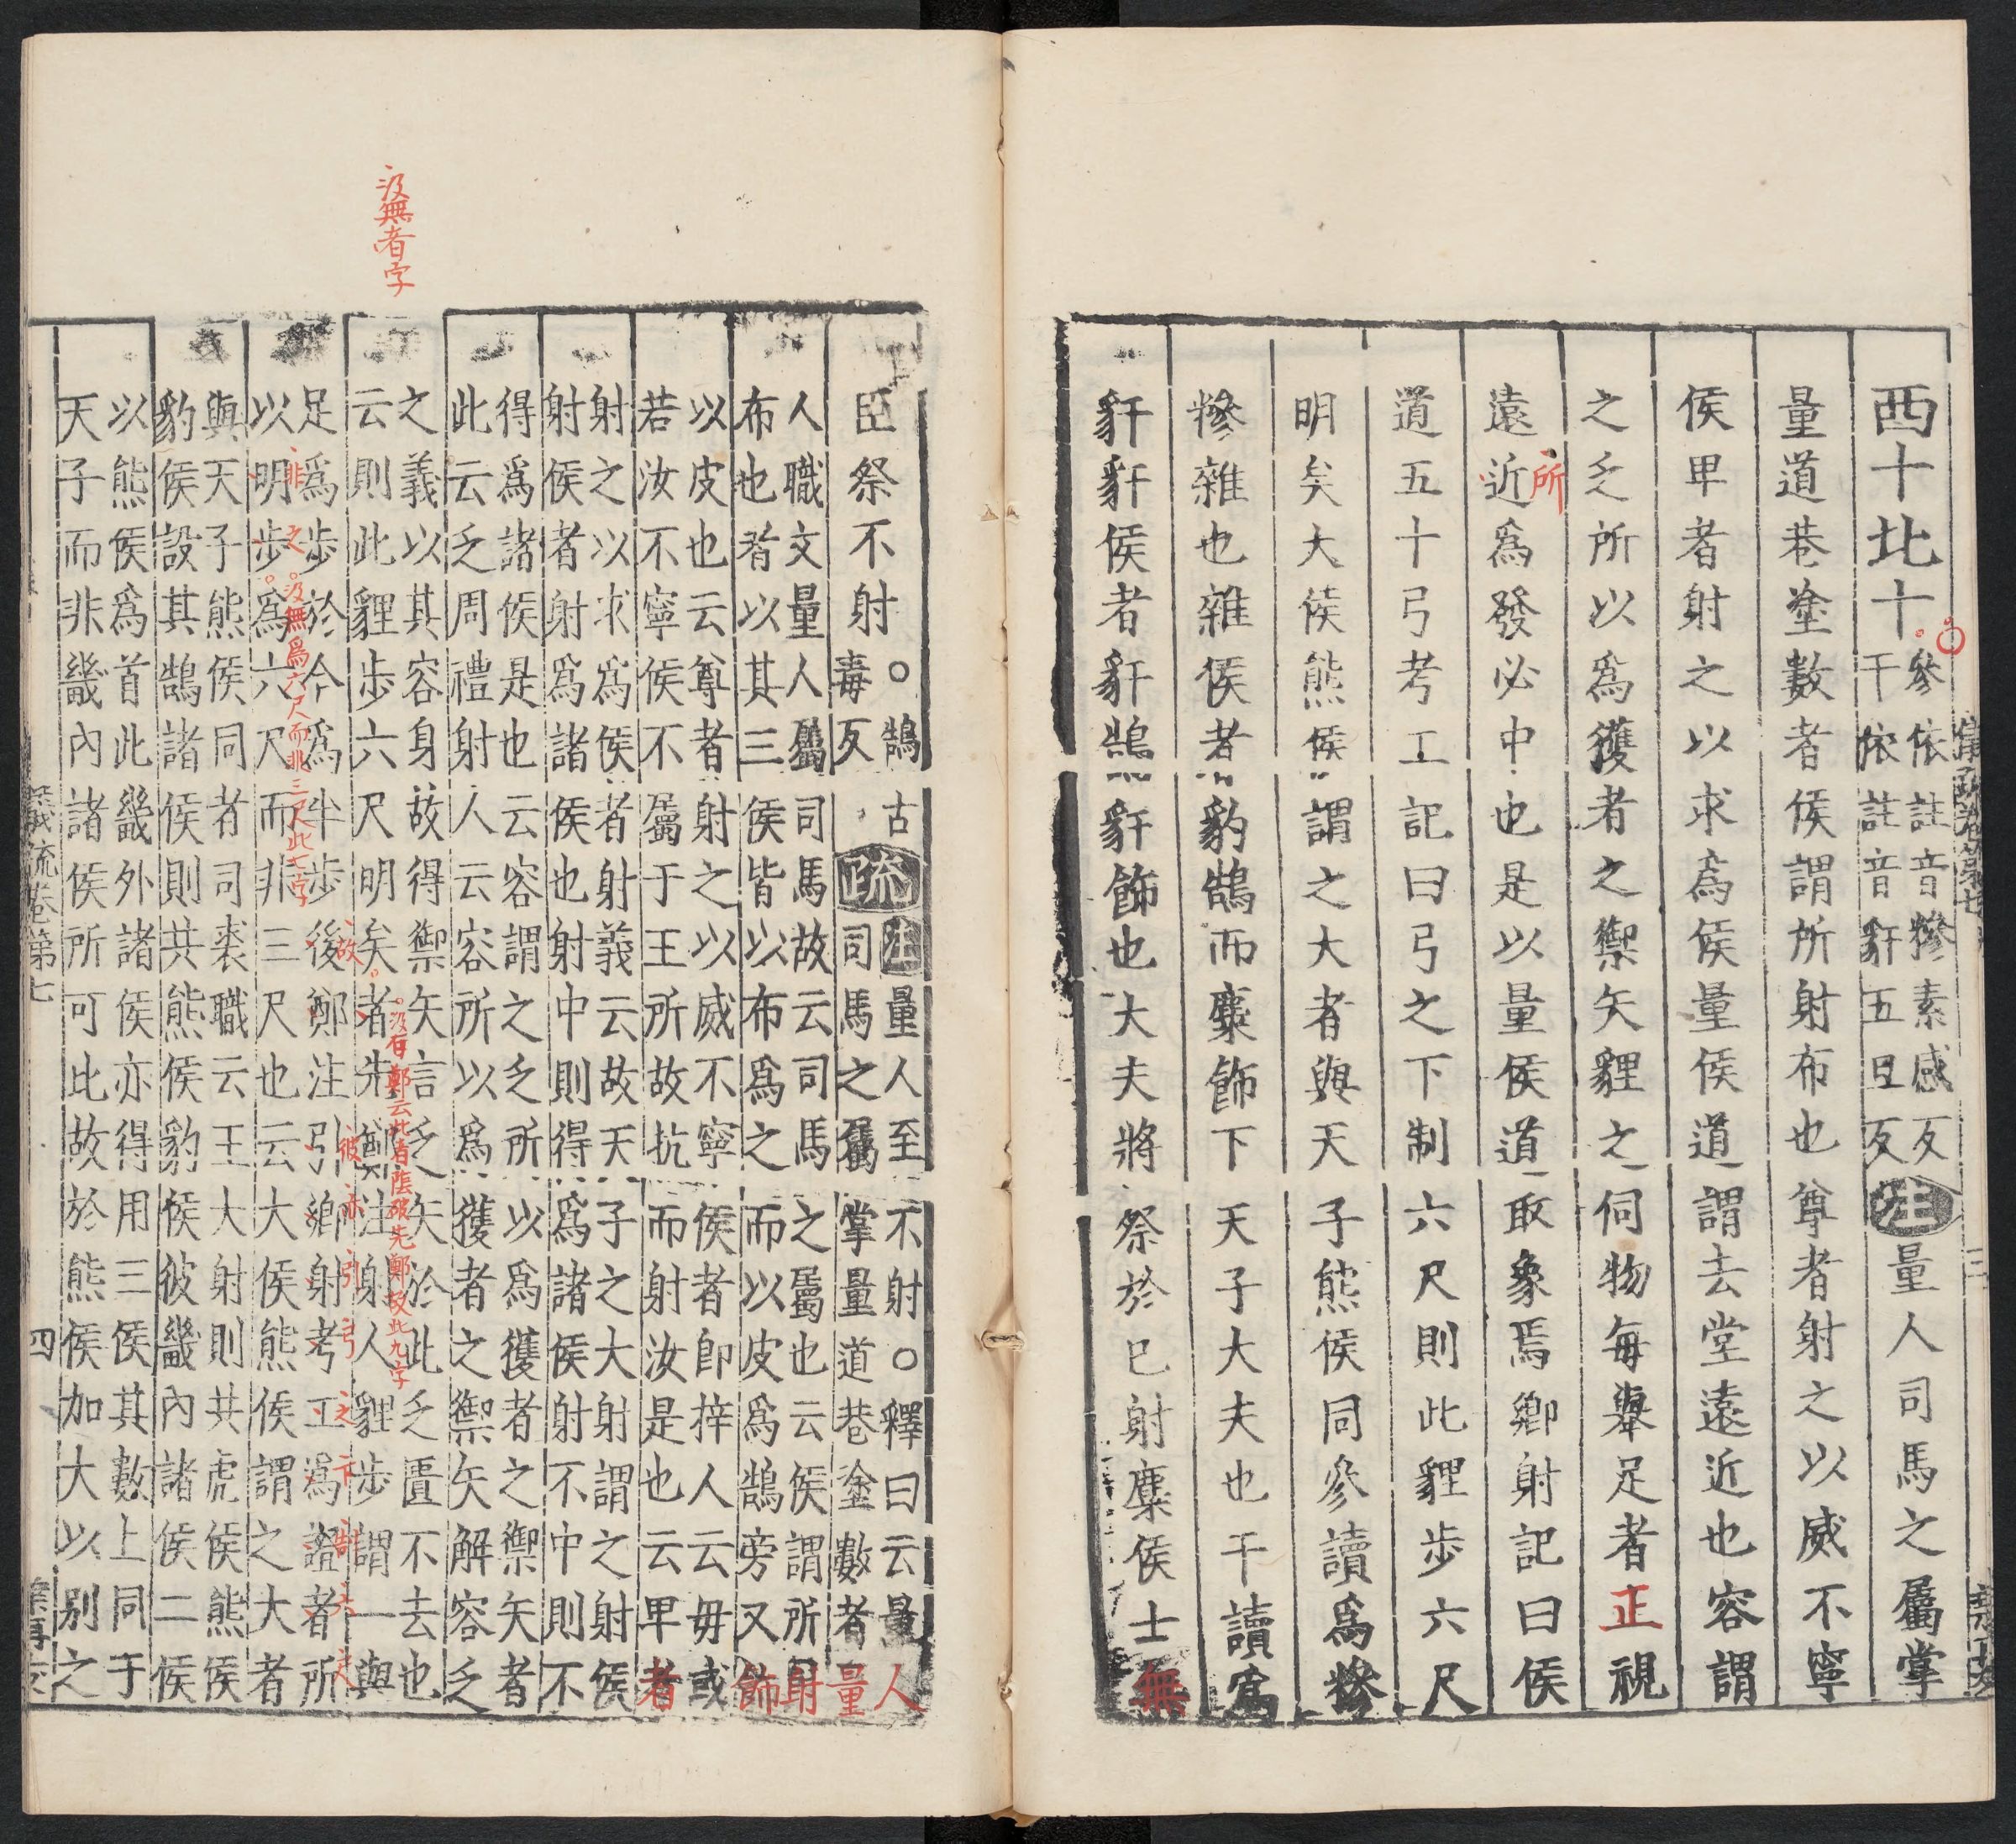 西十北十
參依註音糝素感反
干依註音豻五旦反
注量人司馬之屬掌
量道巷塗數者侯謂所射布也尊者射之以威不寧
侯卑者射之以求爲侯量侯道謂去堂遠近也容謂
之乏所以爲獲者之禦矢貍之伺物每舉足者正視
所
遠近爲發必中也是以量侯道取象焉鄉射記曰侯
道五十弓考工記曰弓之下制六尺則此貍步六尺
明矣大侯熊侯謂之大者與天子熊侯同參讀爲糝
糝雜也雜侯者豹鵠而麋飾下天子大夫也干讀爲
豻豻侯者豻鵠豻飾也大夫將祭於已射麋侯士無
臣祭不射
○鵠古
毒反
疏注量人至不射○釋曰云量人
司馬之屬掌量道巷塗數者量
人職文量人屬司馬故云司馬之屬也云侯謂所射
布也者以其三侯皆以布爲之而以皮爲鵠旁又飾
以皮也云尊者射之以威不寧侯者卽梓人云毋或
若汝不寧侯不屬于王所故抗而射汝是也云卑者
射之以求爲侯者射義云故天子之大射謂之射侯
射侯者射爲諸侯也射中則得爲諸侯射不中則不
得爲諸侯是也云容謂之乏所以爲獲者之禦矢者
此云乏周禮射人云容所以爲獲者之禦矢解容乏
汲無者字
之義以其容身故得禦矢言乏矢於此乏匱不去也
汲有鄭云此者蔭破先鄭故此九字
云則此貍步六尺明矣者先鄭注射人貍步謂一與
故彼亦引弓之下制六尺
足爲步於今爲半步後鄭注引鄉射考工爲證者所
非之
汲無爲六尺而非三尺此七字
以明步爲六尺而非三尺也云大侯熊侯謂之大者
與天子熊侯同者司裘職云王大射則共虎侯熊侯
豹侯設其鵠諸侯則共熊侯豹侯彼畿內諸侯二侯
以熊侯爲首此畿外諸侯亦得用三侯其數上同于
天子而非畿內諸侯所可此故於熊侯加大以別之
義疏卷第七
四